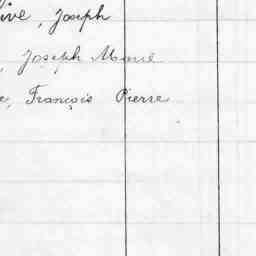 ive, Joseph
, Joseph Marie
e, François Pierre